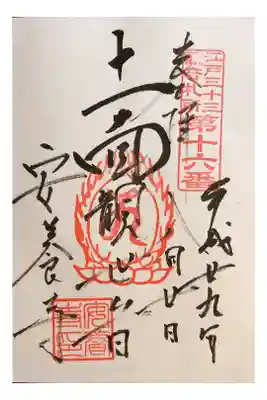 江戸三十三
観音札所
第十六番
奉拝
平成廿九年
月廿日
十一面観世音
安養寺